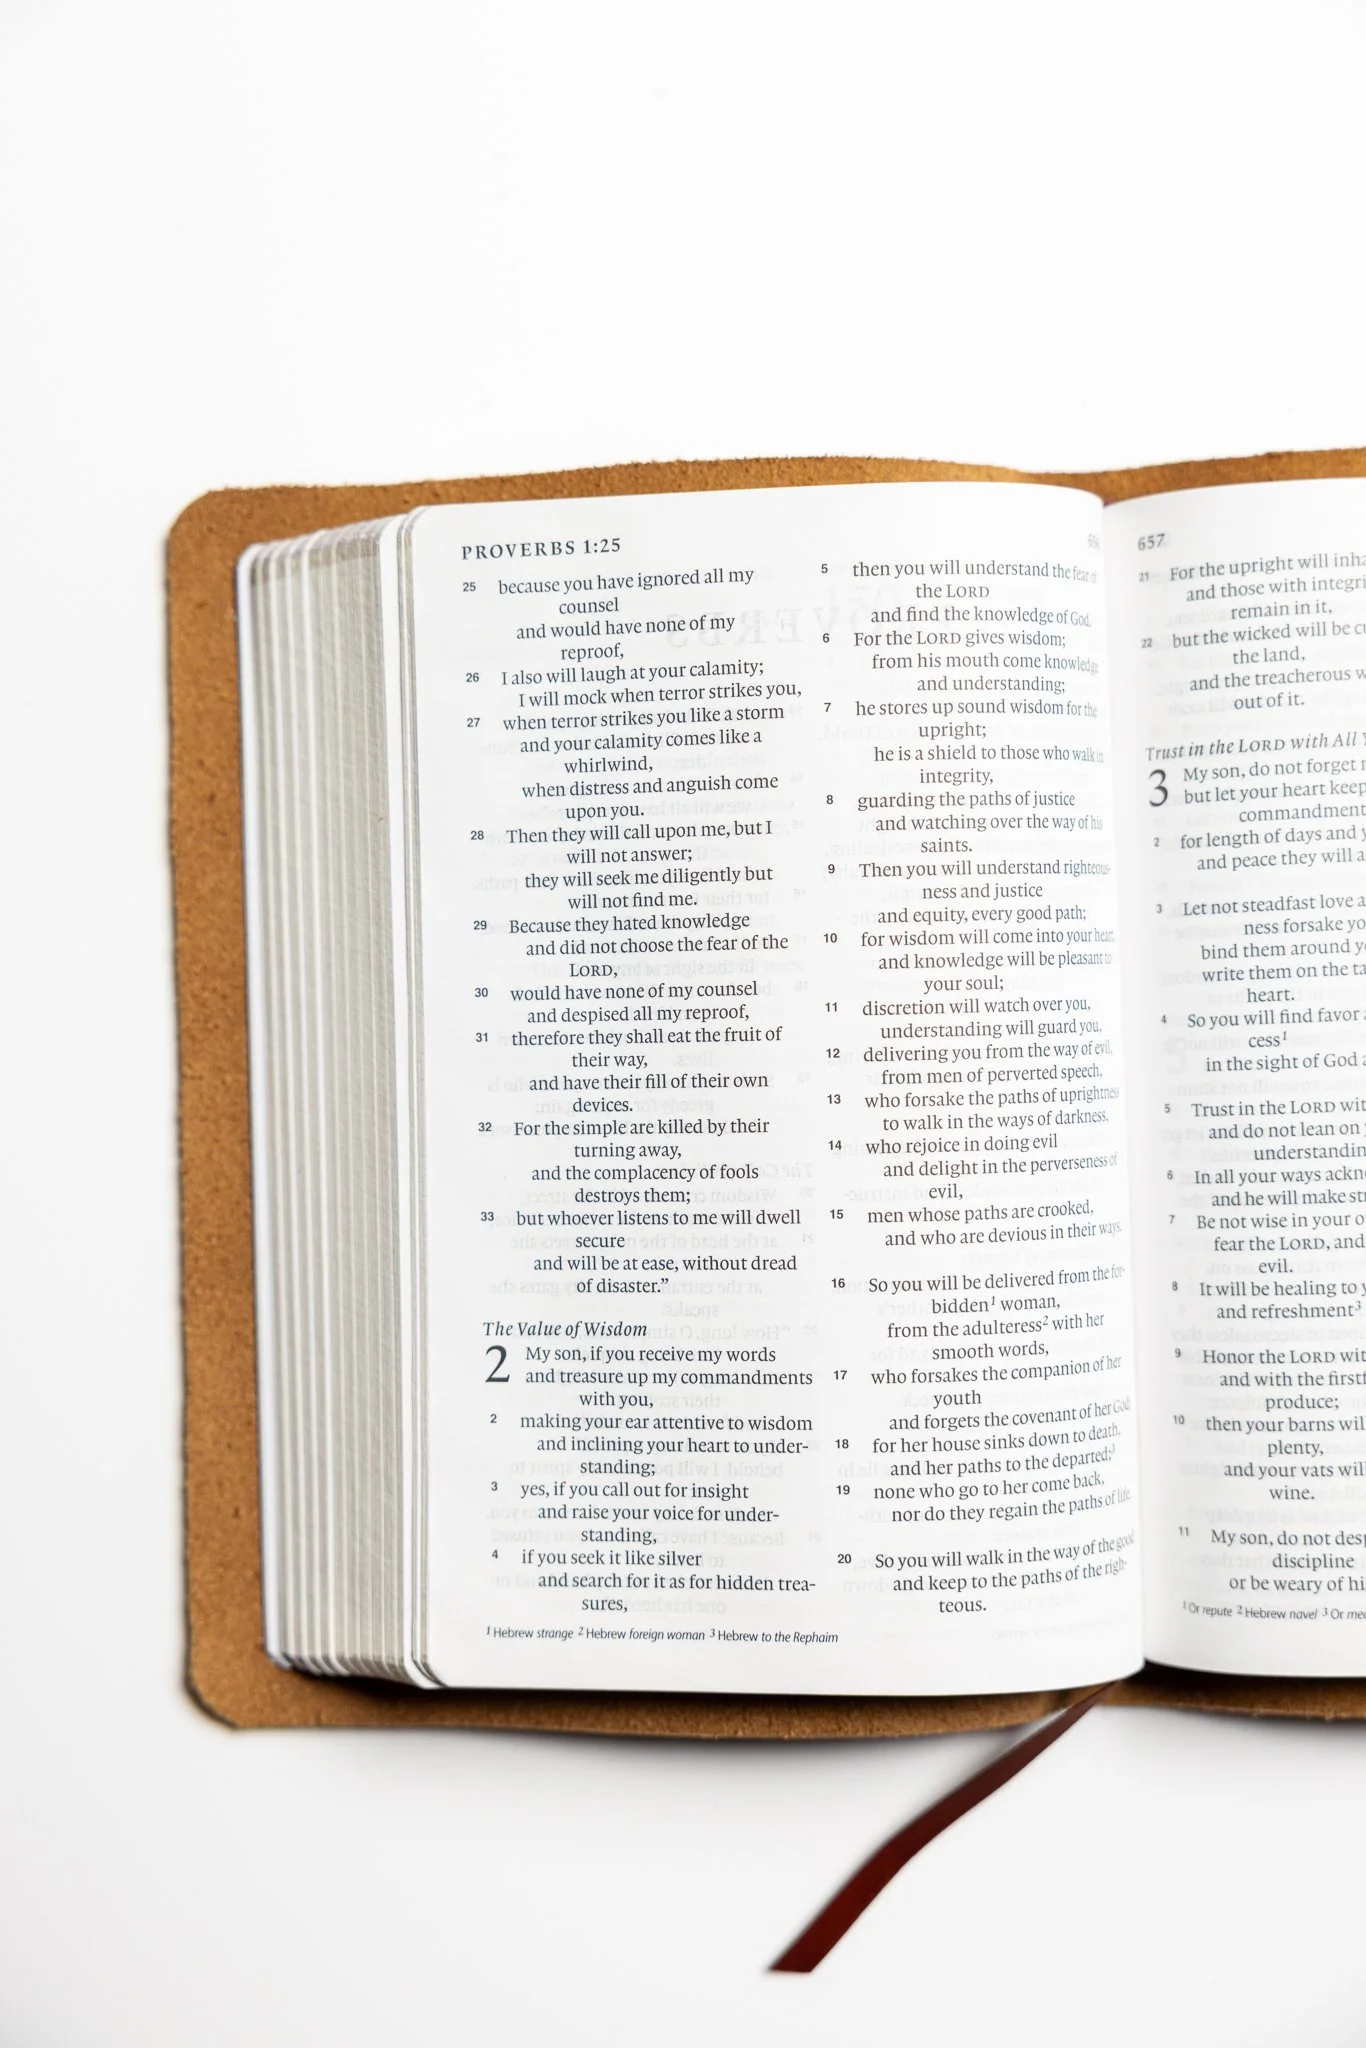 PROVERBS 1:25
25 because you have ignored all my
counsel
and would have none of my
reproof,
26 I also will laugh at your calamity;
I will mock when terror strikes you,
27 when terror strikes you like a storm
and your calamity comes like a
whirlwind,
when distress and anguish come
upon you.
28 Then they will call upon me, but I
will not answer;
they will seek me diligently but
will not find me.
29 Because they hated knowledge
and did not choose the fear of the
LORD,
30 would have none of my counsel
and despised all my reproof,
31 therefore they shall eat the fruit of
their way,
and have their fill of their own
devices.
32 For the simple are killed by their
turning away,
and the complacency of fools
destroys them;
33 but whoever listens to me will dwell
secure
and will be at ease, without dread
of disaster.”
The Value of Wisdom
2 My son, if you receive my words
and treasure up my commandments
with you,
2 making your ear attentive to wisdom
and inclining your heart to under-
standing;
3 yes, if you call out for insight
and raise your voice for under-
standing,
4 if you seek it like silver
and search for it as for hidden trea-
sures,
656
5 then you will understand the fear of
the LORD
and find the knowledge of God.
6 For the LORD gives wisdom;
from his mouth come knowledge
and understanding;
7 he stores up sound wisdom for the
upright;
he is a shield to those who walk in
integrity,
8 guarding the paths of justice
and watching over the way of his
saints.
9 Then you will understand righteous-
ness and justice
and equity, every good path;
10 for wisdom will come into your heart,
and knowledge will be pleasant to
your soul;
11 discretion will watch over you,
understanding will guard you,
12 delivering you from the way of evil,
from men of perverted speech,
13 who forsake the paths of uprightness
to walk in the ways of darkness,
14 who rejoice in doing evil
and delight in the perverseness of
evil,
15 men whose paths are crooked,
and who are devious in their ways.
16 So you will be delivered from the for-
bidden1 woman,
from the adulteress2 with her
smooth words,
17 who forsakes the companion of her
youth
and forgets the covenant of her God;
18 for her house sinks down to death,
and her paths to the departed;3
19 none who go to her come back,
nor do they regain the paths of life.
20 So you will walk in the way of the good
and keep to the paths of the righ-
teous.
1 Hebrew strange 2 Hebrew foreign woman 3 Hebrew to the Rephaim
657
21 For the upright will
and those with
remain in it,
22 but the wicked will be
the land,
and the treacherous
out of it.
Trust in the LORD with All
3 My son, do not forget
but let your heart keep
commandment
2 for length of days and
and peace they will
3 Let not steadfast love
ness forsake
bind them around
write them on the
heart.
4 So you will find favor
cess1
in the sight of God
5 Trust in the LORD
and do not lean on
6 In all your ways
and he will make
7 Be not wise in your
fear the LORD, and
evil.
8 It will be healing to
and refreshment3
9 Honor the LORD
and with the
produce;
10 then your barns
plenty,
and your vats
wine.
11 My son, do not
discipline
or be weary of
1 Or repute 2 Hebrew navel 3 Or